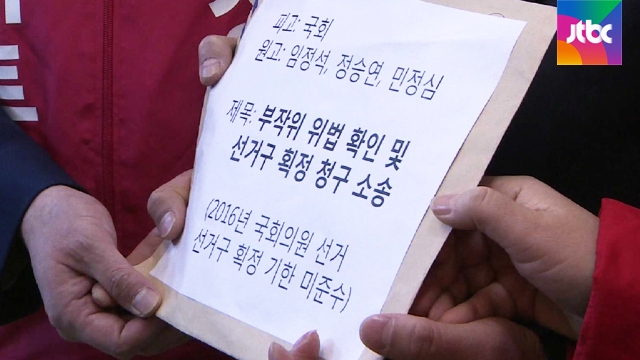 jtbc
피고: 국회
원고: 임정석, 정승연, 민정심
제목: 부작위 위법 확인 및
선거구 획정 청구 소송
(2016년 국회의원 선거
선거구 획정 기한 미준수)
트